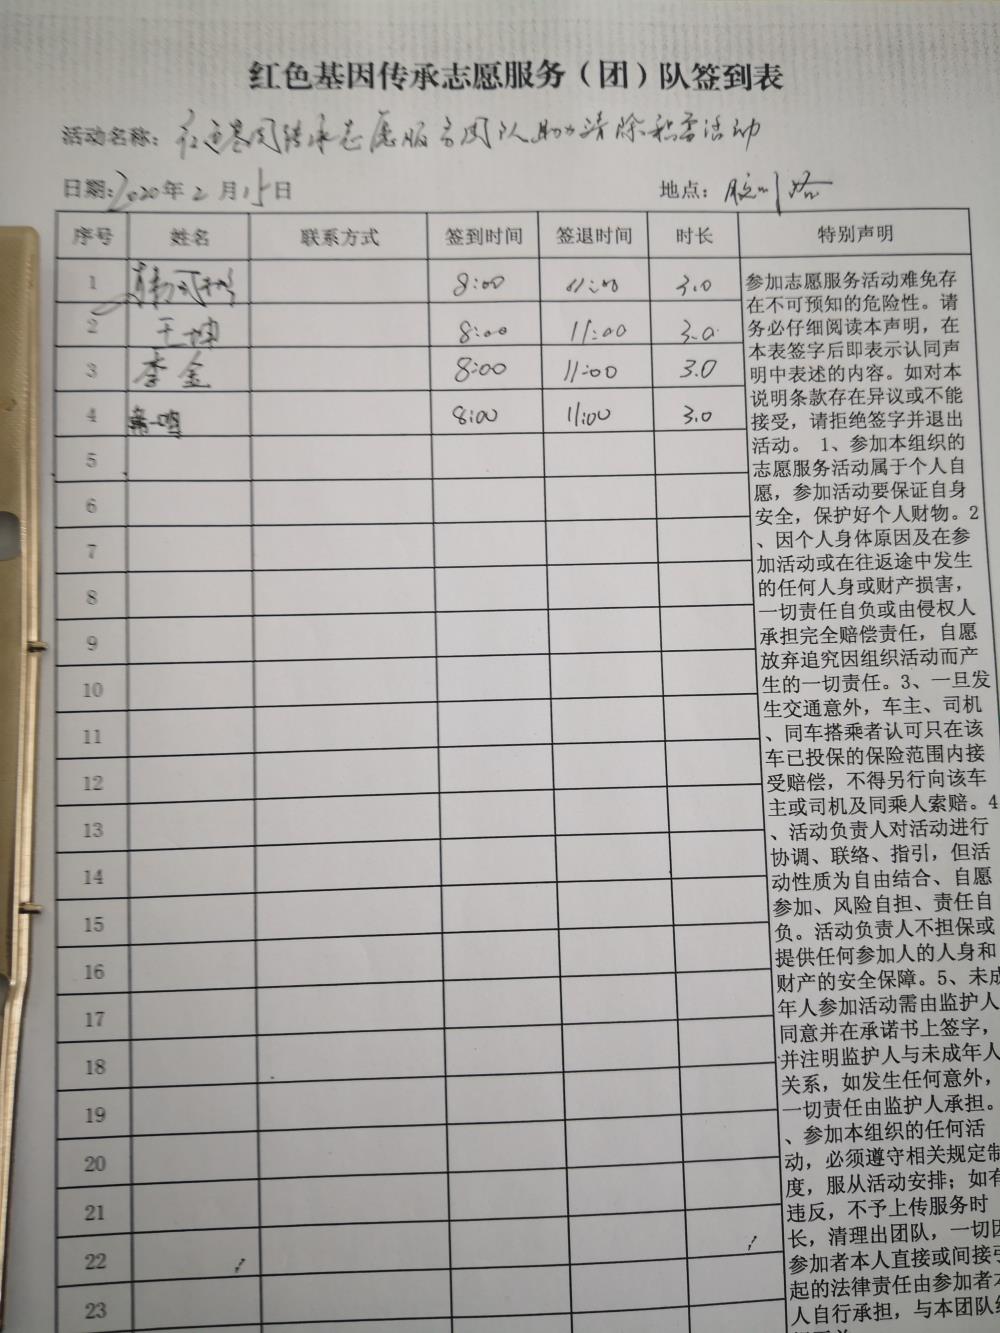 红色基因传承志愿服务（团）队签到表
活动名称：红色基因传承志愿服务团队助力清除积雪活动
日期：2020年2月15日 地点：胶州路
序号 姓名 联系方式 签到时间 签退时间 时长 特别声明
1 8:00 11:00 3.0
2 王坤 8:00 11:00 3.0
3 李金 8:00 11:00 3.0
4 8:00 11:00 3.0
5
6
7
8
9
10
11
12
13
14
15
16
17
18
19
20
21
22
23
参加志愿服务活动难免存
在不可预知的危险性。请
务必仔细阅读本声明，在
本表签字后即表示认同声
明中表述的内容。如对本
说明条款存在异议或不能
接受，请拒绝签字并退出
活动。 1、参加本组织的
志愿服务活动属于个人自
愿，参加活动要保证自身
安全，保护好个人财物。2
、因个人身体原因及在参
加活动或在往返途中发生
的任何人身或财产损害，
一切责任自负或由侵权人
承担完全赔偿责任，自愿
放弃追究因组织活动而产
生的一切责任。3、一旦发
生交通意外，车主、司机
、同车搭乘者认可只在该
车已投保的保险范围内接
受赔偿，不得另行向该车
主或司机及同乘人索赔。4
、活动负责人对活动进行
协调、联络、指引，但活
动性质为自由结合、自愿
参加、风险自担、责任自
负。活动负责人不担保或
提供任何参加人的人身和
财产的安全保障。5、未成
年人参加活动需由监护人
同意并在承诺书上签字，
并注明监护人与未成年人
关系，如发生任何意外，
一切责任由监护人承担。
、参加本组织的任何活
动，必须遵守相关规定制
度，服从活动安排；如有
违反，不予上传服务时
长，清理出团队，一切因
参加者本人直接或间接引
起的法律责任由参加者本
人自行承担，与本团队组